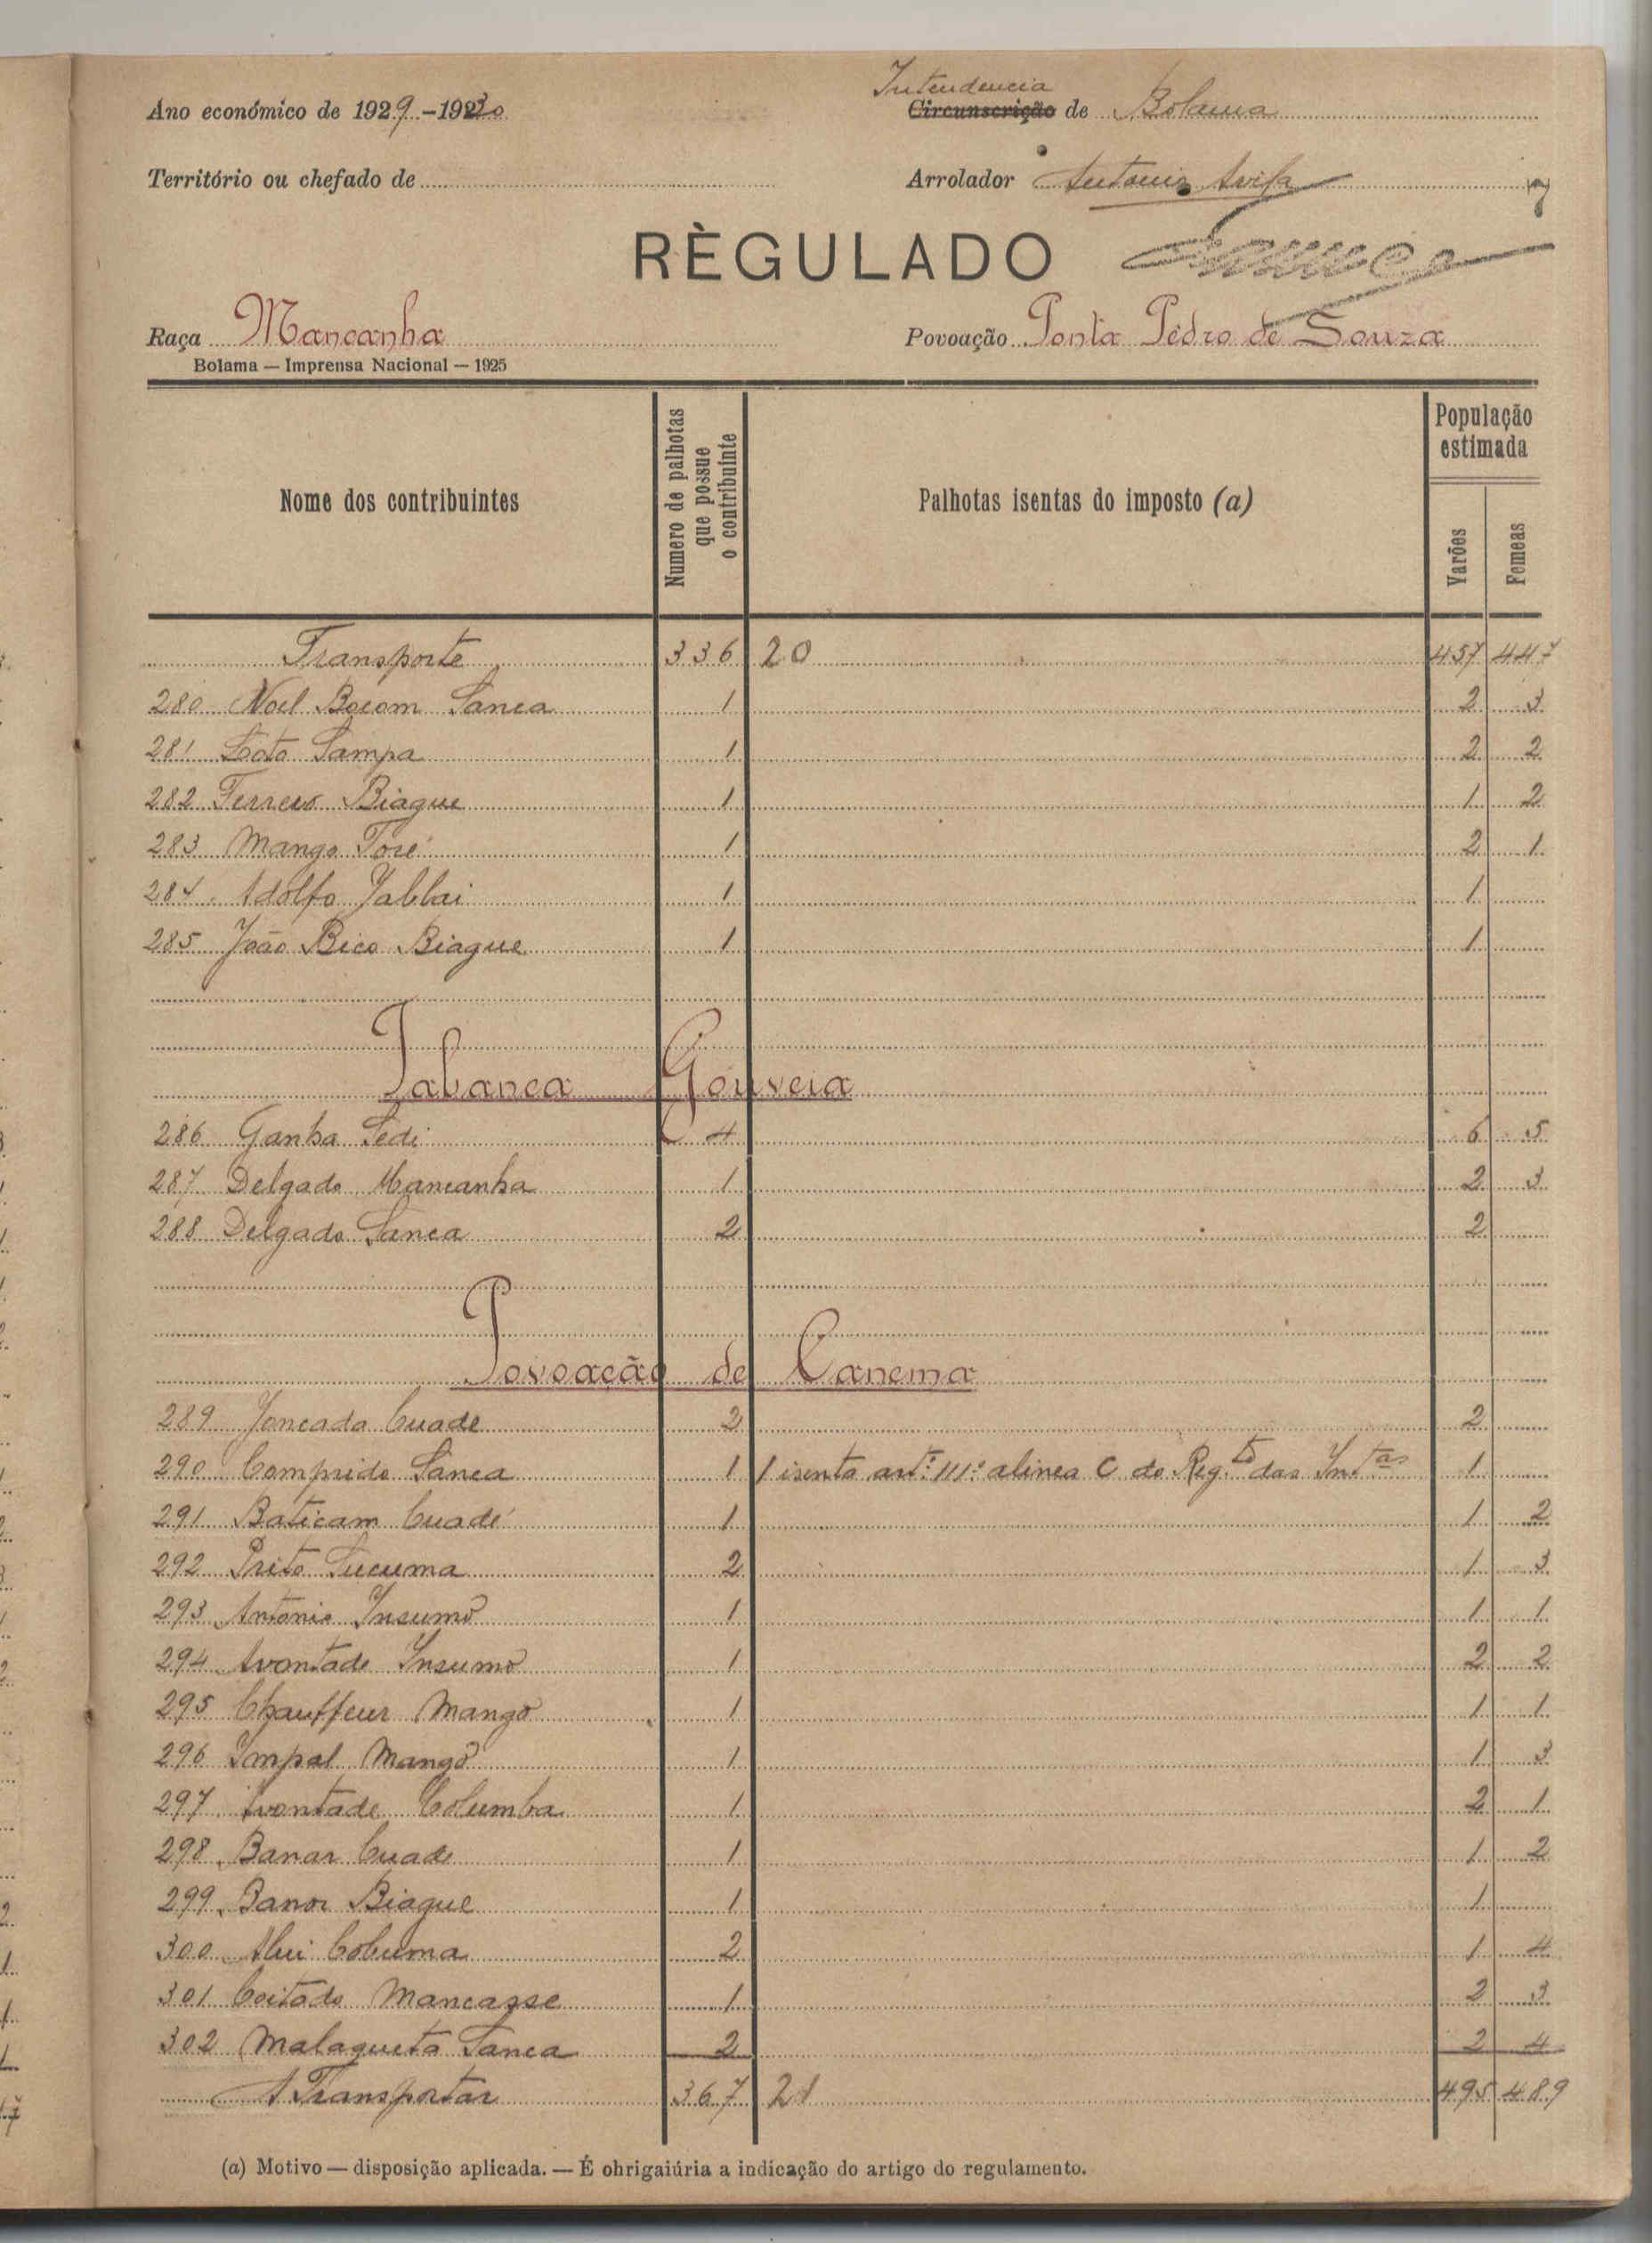 Intendencia
Ano económico de 1929-1930 Circunscrição de Bolama
Território ou chefado de Arrolador Antonio
RÈGULADO
Raça Mancanha Povoação Ponta Pedro de Souza
Bolama — Imprensa Nacional — 1925
Nome dos contribuintes
Numero de palhotas que possue o contribuinte
Palhotas isentas do imposto (a)
População estimada
Varões Femeas
Transporte 336 20 457 447
280 Noel Bocom Sanca 1 2 3
281 Soto Sampa 1 2 2
282 Ferrero Biague 1 1 2
283 Mango Toré 1 2 1
284 Adolfo Jallai 1 1
285 João Bico Biague 1 1
Tabanca Gouveia
286 Ganha Sedi 4 6 5
287 Delgado Mancanha 1 2 3
288 Delgado Sanca 2 2
Povoação de Canema
289 Joncada Cuade 2 2
290 Comprido Sanca 1 1 isento artº 111º alinea C do Reg.to das Int.as 1
291 Baticam Cuadé 1 1 2
292 Prito Sucuma 2 1 3
293 Antonio Insumo 1 1 1
294 Avontade Insumo 1 2 2
295 Chauffeur Mango 1 1 1
296 Impal Mango 1 1 3
297 Avontade Columba 1 2 1
298 Banar Cuade 1 1 2
299 Banor Biague 1 1
300 Alui Coluuma 2 1 4
301 Coitado Mancasse 1 2 3
302 Malagueta Sanca 2 2 4
A Transportar 367 21 495 489
(a) Motivo — disposição aplicada. — É obrigaiúria a indicação do artigo do regulamento.